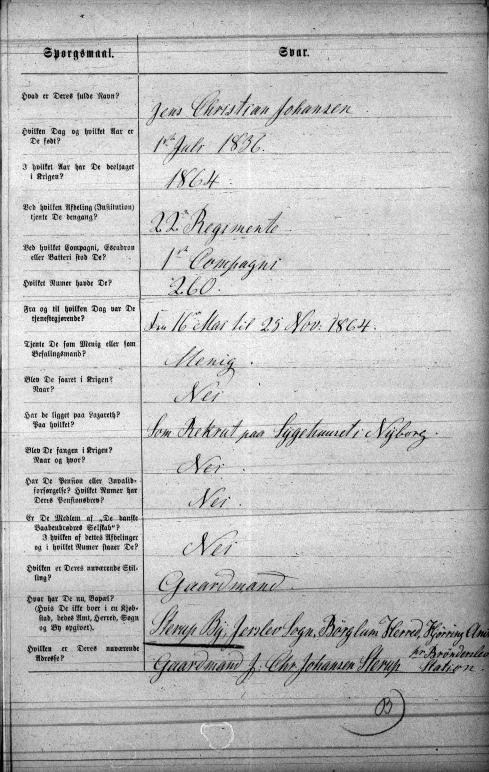 Spørgsmaal.
Svar.
Hvad er Deres fulde Navn?
Jens Christian Johansen
Hvilken Dag og hvilket Aar er
De født?
1ste Juli 1836.
I hvilket Aar har De deeltaget
i Krigen?
1864.
Ved hvilken Afdeling (Institution)
tjente De dengang?
22de Regimente
Ved hvilket Compagni, Escadron
eller Batteri stod De?
1ste Compagni
Hvilket Numer havde De?
260.
Fra og til hvilken Dag var De
tjenstegjørende?
Fra 16de Mai til 25 Nov. 1864.
Tjente De som Menig eller som
Befalingsmand?
Menig.
Blev De saaret i Krigen?
Naar?
Nei
Har De ligget paa Lazareth?
Paa hvilket?
Som Rekrut paa Sygehuuset i Nyborg.
Blev De fangen i Krigen?
Naar og hvor?
Nei.
Har De Pension eller Invalid-
forsørgelse? Hvilket Numer har
Deres Pensionsbrev?
Nei.
Er De Medlem af „De danske
Vaabenbrødres Selskab"?
I hvilken af dettes Afdelinger
og i hvilket Numer staaer De?
Nei
Hvilken er Deres nuværende Stil-
ling?
Gaardmand.
Hvor har De nu Bopæl?
(Hvis De ikke boer i en Kjøb-
stad, bedes Amt, Herred, Sogn
og By opgivet).
Sterup By, Jerslev Sogn, Børglum Herred, Hjørring Amt
Hvilken er Deres nuværende
Adresse?
Gaardmand J. Chr. Johansen Sterup
pr Brønderslev
Station.